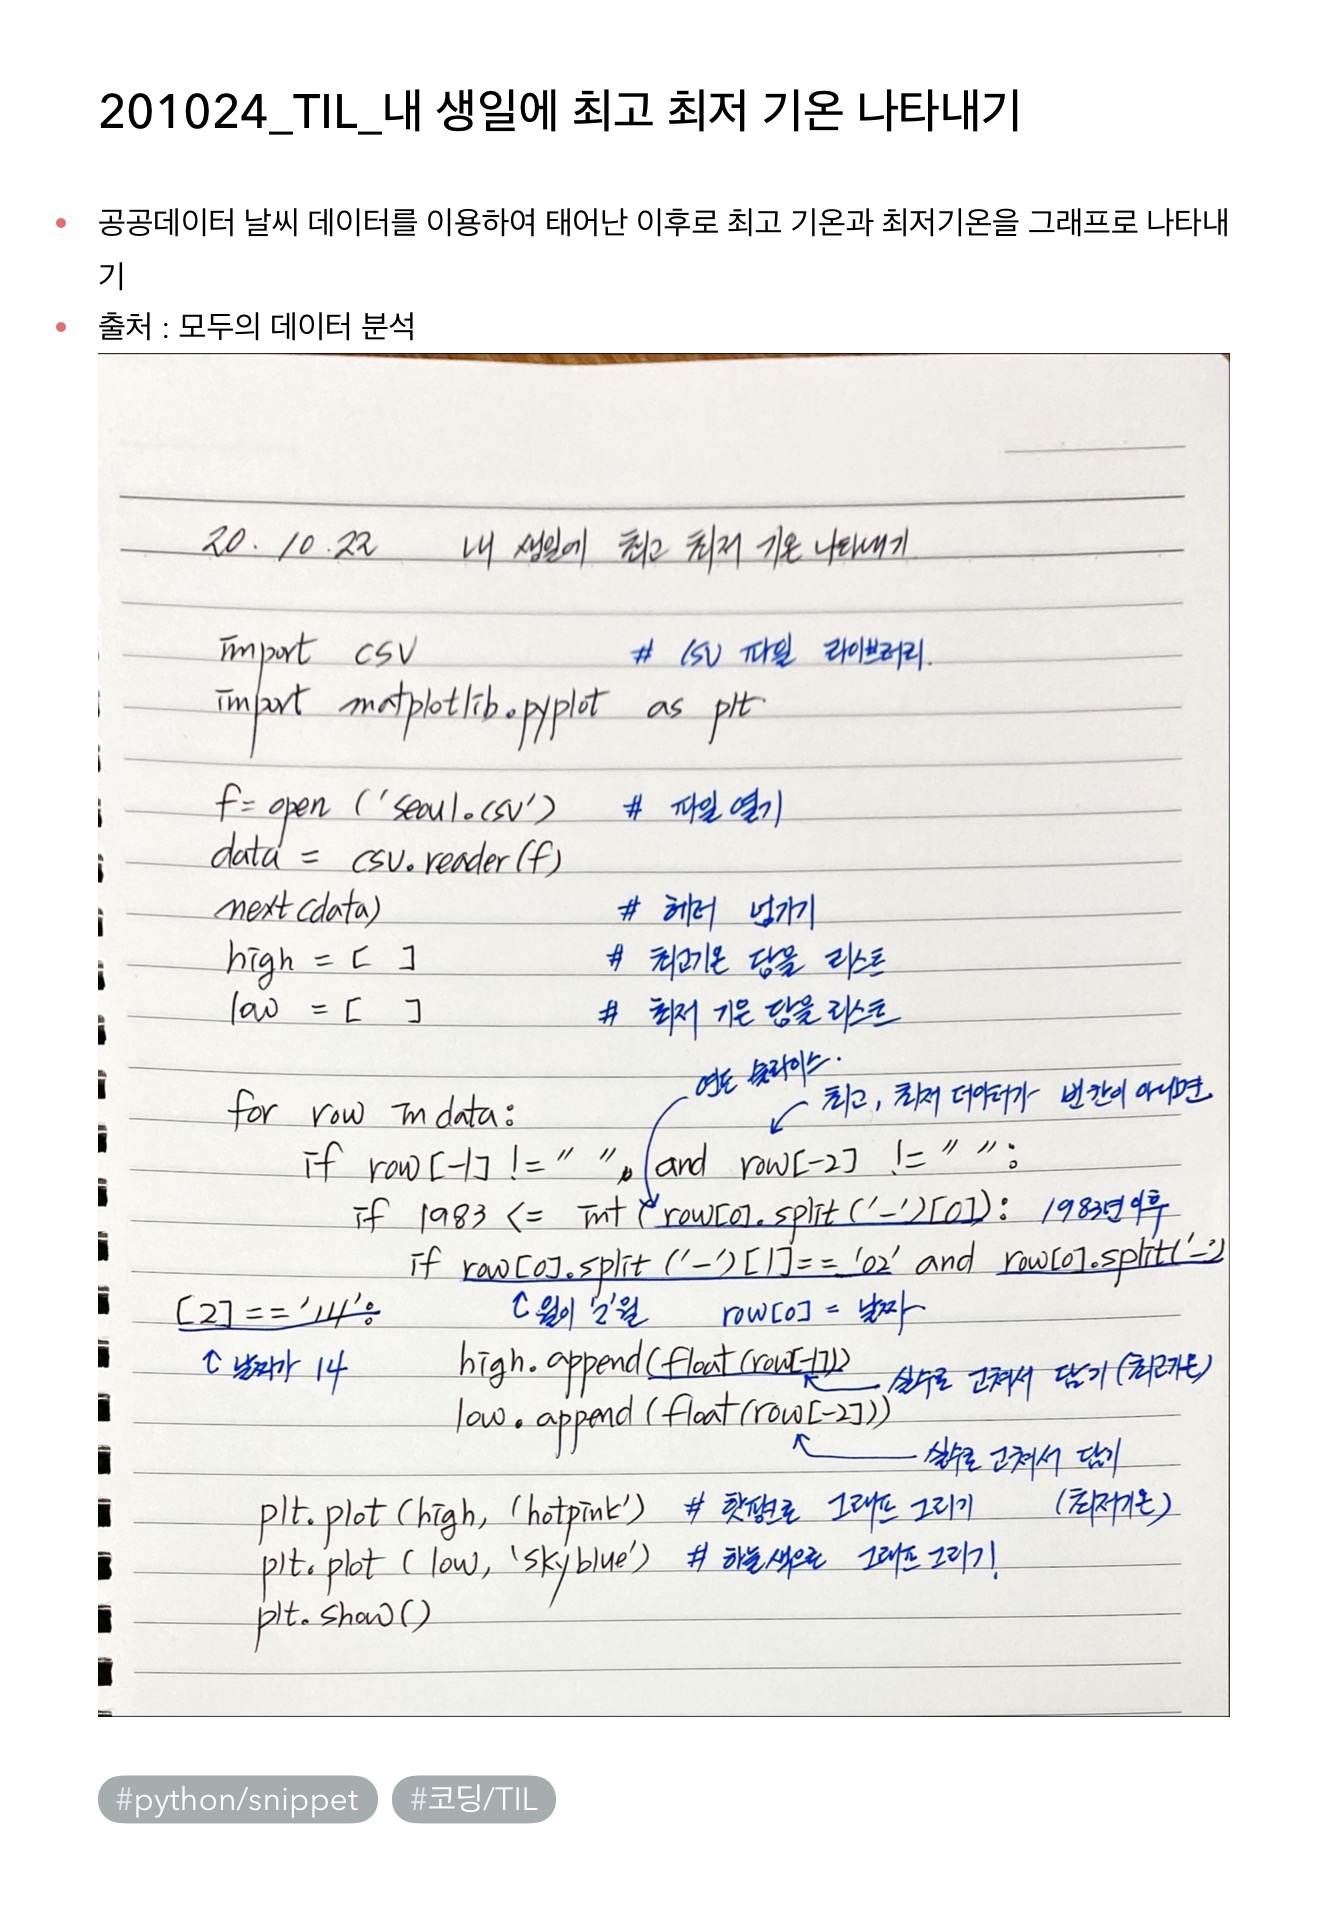 201024_TIL_내 생일에 최고 최저 기온 나타내기
공공데이터 날씨 데이터를 이용하여 태어난 이후로 최고 기온과 최저기온을 그래프로 나타내
기
출처 : 모두의 데이터 분석
20. 10. 22 내 생일에 최고 최저 기온 나타내기
import csv # CSV 파일 라이브러리.
import matplotlib.pyplot as plt
f= open ('seoul.csv') # 파일 열기
data = csv.reader(f)
next(data) # 헤더 넘기기
high = [ ] # 최고기온 담을 리스트
low = [ ] # 최저 기온 담을 리스트
연도 슬라이스.
최고, 최저 데이터가 빈칸이 아니면
for row in data:
if row[-1] != " " and row[-2] != " ":
if 1983 <= int (row[0].split('-')[0]): 1983년 이후
if row[0].split('-')[1]== '02' and row[0].split('-')
[2]=='14': ↑ 월이 '2'월 row[0] = 날짜
↑ 날짜가 14 high.append(float(row[-1])) 실수로 고쳐서 담기 (최고기온)
low.append(float(row[-2]))
실수로 고쳐서 담기
(최저기온)
plt.plot(high, 'hotpink') # 핫핑크로 그래프 그리기
plt.plot( low, 'skyblue') # 하늘색으로 그래프 그리기!
plt.show()
#python/snippet #코딩/TIL